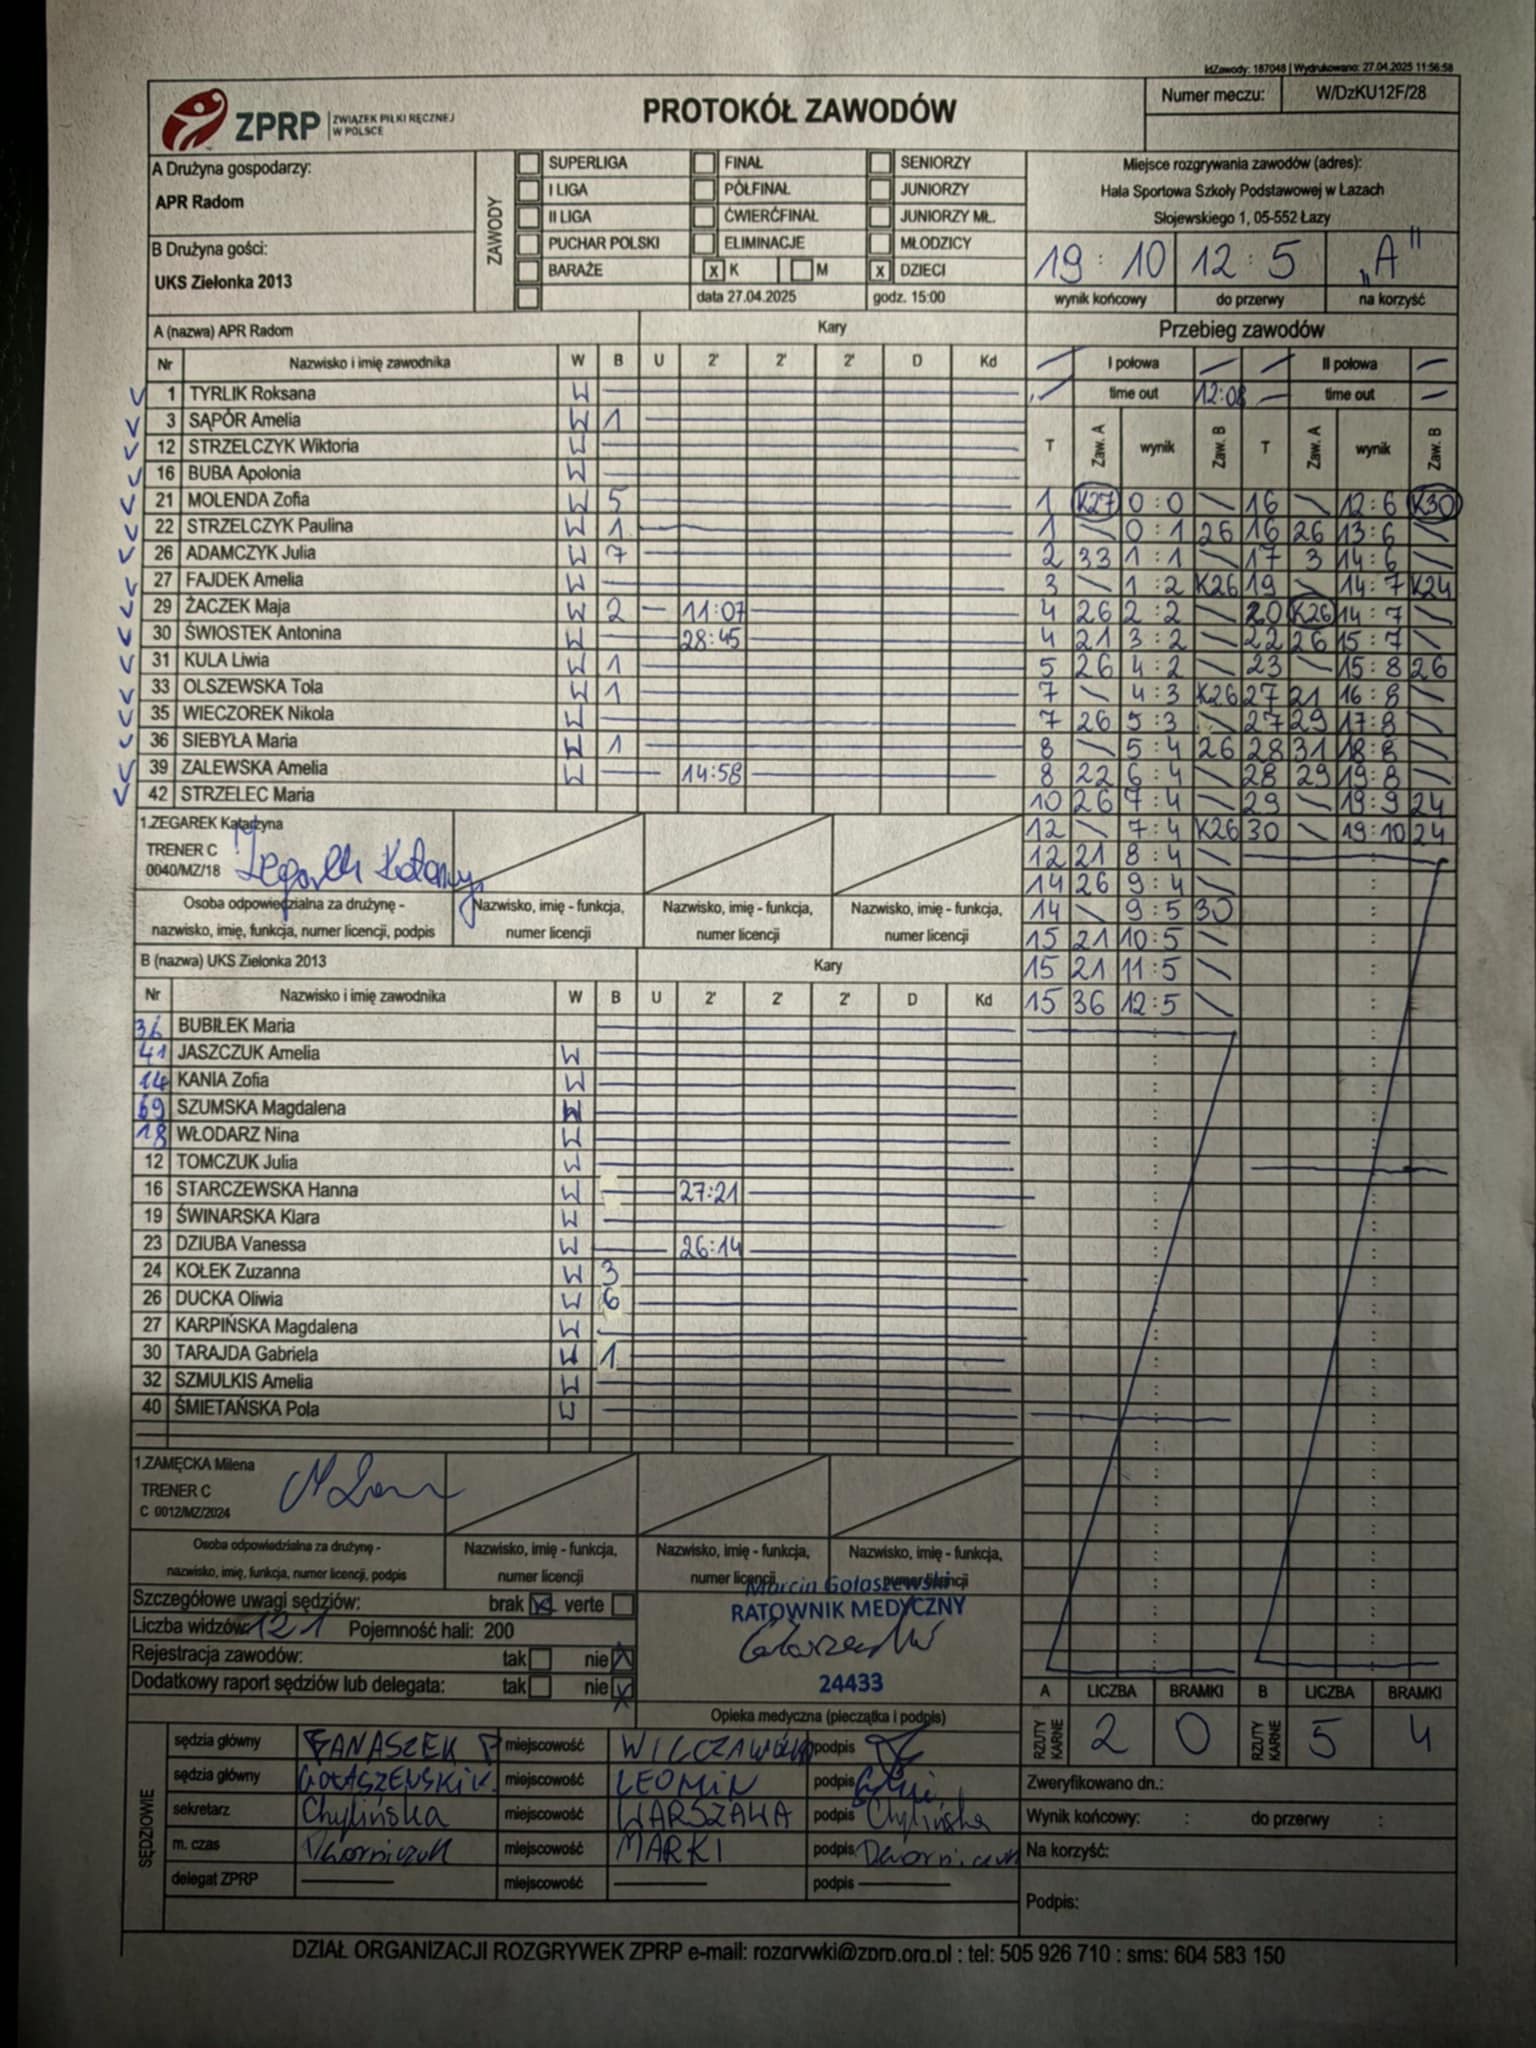 idZawody: 187048 | Wydrukowano: 27.04.2025 11:56:58
ZPRP ZWIĄZEK PIŁKI RĘCZNEJ W POLSCE
PROTOKÓŁ ZAWODÓW
Numer meczu: W/DzKU12F/28
A Drużyna gospodarzy:
APR Radom
B Drużyna gości:
UKS Zielonka 2013
ZAWODY
SUPERLIGA FINAŁ SENIORZY
I LIGA PÓŁFINAŁ JUNIORZY
II LIGA ĆWIERĆFINAŁ JUNIORZY MŁ.
PUCHAR POLSKI ELIMINACJE MŁODZICY
BARAŻE x K M x DZIECI
data 27.04.2025 godz. 15:00
Miejsce rozgrywania zawodów (adres):
Hala Sportowa Szkoły Podstawowej w Łazach
Słojewskiego 1, 05-552 Łazy
19 : 10 12 : 5 „A"
wynik końcowy do przerwy na korzyść
A (nazwa) APR Radom Kary
Nr Nazwisko i imię zawodnika W B U 2' 2' 2' D Kd
1 TYRLIK Roksana W
3 SĄPÓR Amelia W 1
12 STRZELCZYK Wiktoria W
16 BUBA Apolonia W
21 MOLENDA Zofia W 5
22 STRZELCZYK Paulina W 1
26 ADAMCZYK Julia W 7
27 FAJDEK Amelia W
29 ŻACZEK Maja W 2 — 11:07
30 ŚWIOSTEK Antonina W 28:45
31 KULA Liwia W 1
33 OLSZEWSKA Tola W 1
35 WIECZOREK Nikola W
36 SIEBYŁA Maria W 1
39 ZALEWSKA Amelia W — 14:58
42 STRZELEC Maria
1.ZEGAREK Katarzyna
TRENER C
0040/MZ/18
Osoba odpowiedzialna za drużynę -
nazwisko, imię, funkcja, numer licencji, podpis
Nazwisko, imię - funkcja, numer licencji
Nazwisko, imię - funkcja, numer licencji
Nazwisko, imię - funkcja, numer licencji
B (nazwa) UKS Zielonka 2013 Kary
Nr Nazwisko i imię zawodnika W B U 2' 2' 2' D Kd
36 BUBIŁEK Maria
41 JASZCZUK Amelia W
14 KANIA Zofia W
69 SZUMSKA Magdalena W
18 WŁODARZ Nina W
12 TOMCZUK Julia W
16 STARCZEWSKA Hanna W 27:21
19 ŚWINARSKA Klara W
23 DZIUBA Vanessa W 26:14
24 KOŁEK Zuzanna W 3
26 DUCKA Oliwia W 6
27 KARPIŃSKA Magdalena W
30 TARAJDA Gabriela W 1
32 SZMULKIS Amelia W
40 ŚMIETAŃSKA Pola W
1.ZAMĘCKA Milena
TRENER C
C 0012/MZ/2024
Osoba odpowiedzialna za drużynę -
nazwisko, imię, funkcja, numer licencji, podpis
Nazwisko, imię - funkcja, numer licencji
Nazwisko, imię - funkcja, numer licencji
Nazwisko, imię - funkcja, numer licencji
Przebieg zawodów
I połowa II połowa
time out 12:08 — time out —
T Zaw. A wynik Zaw. B T Zaw. A wynik Zaw. B
1 K27 0:0 \ 16 \ 12:6 K30
1 \ 0:1 26 16 26 13:6 \
2 33 1:1 \ 17 3 14:6 \
3 \ 1:2 K26 19 \ 14:7 K24
4 26 2:2 \ 20 K26 14:7 \
4 21 3:2 \ 22 26 15:7 \
5 26 4:2 \ 23 \ 15:8 26
7 \ 4:3 K26 27 21 16:8 \
7 26 5:3 \ 27 29 17:8 \
8 \ 5:4 26 28 31 18:8 \
8 22 6:4 \ 28 29 19:8 \
10 26 7:4 \ 29 \ 19:9 24
12 \ 7:4 K26 30 \ 19:10 24
12 21 8:4 \
14 26 9:4 \
14 \ 9:5 30
15 21 10:5 \
15 21 11:5 \
15 36 12:5 \
Szczegółowe uwagi sędziów: brak x verte
Liczba widzów: 121 Pojemność hali: 200
Rejestracja zawodów: tak nie x
Dodatkowy raport sędziów lub delegata: tak nie x
Marcin Gołoszewski
RATOWNIK MEDYCZNY
24433
Opieka medyczna (pieczątka i podpis)
A LICZBA BRAMKI B LICZBA BRAMKI
RZUTY KARNE 2 0 RZUTY KARNE 5 4
SĘDZIOWIE
sędzia główny miejscowość podpis
sędzia główny miejscowość podpis
sekretarz Chylińska miejscowość WARSZAWA podpis Chylińska
m. czas Dworniczuk miejscowość MARKI podpis
delegat ZPRP — miejscowość — podpis —
Zweryfikowano dn.:
Wynik końcowy: : do przerwy :
Na korzyść:
Podpis:
DZIAŁ ORGANIZACJI ROZGRYWEK ZPRP e-mail: rozgrywki@zprp.org.pl : tel: 505 926 710 : sms: 604 583 150